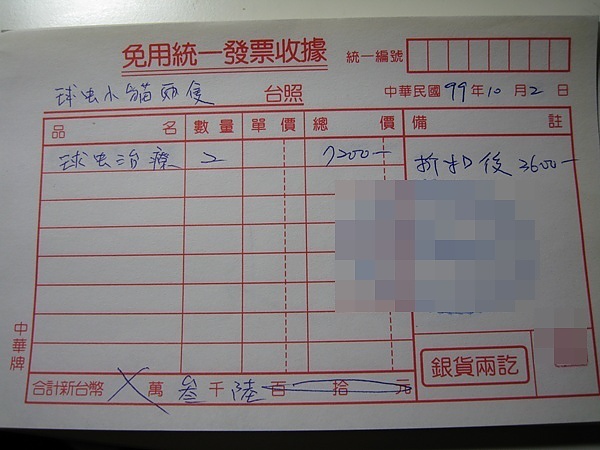 免用統一發票收據 統一編號
球虫小貓兩隻 台照 中華民國99年10月2日
品名 數量 單價 總價 備註
球虫治療 2 7200- 折扣後3600-
中華牌
銀貨兩訖
合計新台幣 萬叁千陸百拾元